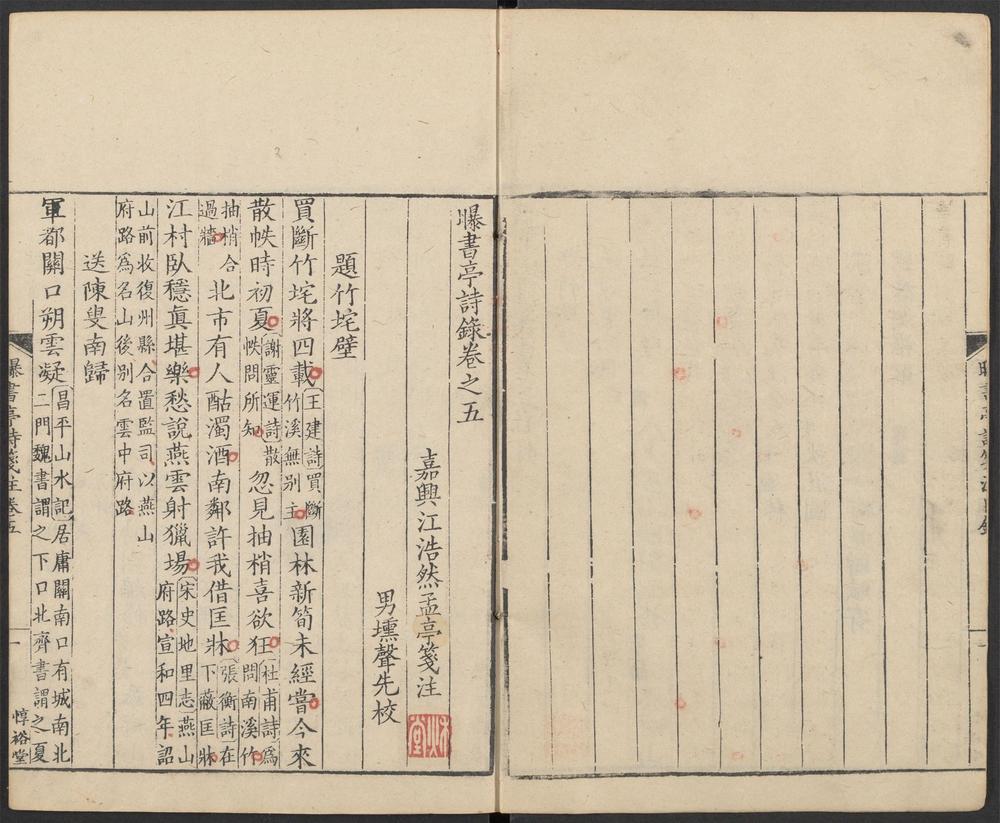 曝書亭詩錄卷之五
嘉興江浩然孟亭箋注
男壎聲先校
題竹垞壁
買斷竹垞將四載王建詩買斷竹溪無別主園林新筍未經嘗今來
散帙時初夏謝靈運詩散帙問所知忽見抽梢喜欲狂杜甫詩爲問南溪竹
抽梢合過牆北市有人酤濁酒南鄰許我借匡牀張衡詩在下蔽匡牀
江村臥穩眞堪樂愁說燕雲射獵場宋史地里志燕山府路宣和四年詔
山前收復州縣合置監司以燕山府路爲名山後別名雲中府路
送陳叟南歸
軍都關口朔雲凝昌平山水記居庸關南口有城南北二門魏書謂之下口北齊書謂之夏
曝書亭詩箋注卷五
一
惇裕堂